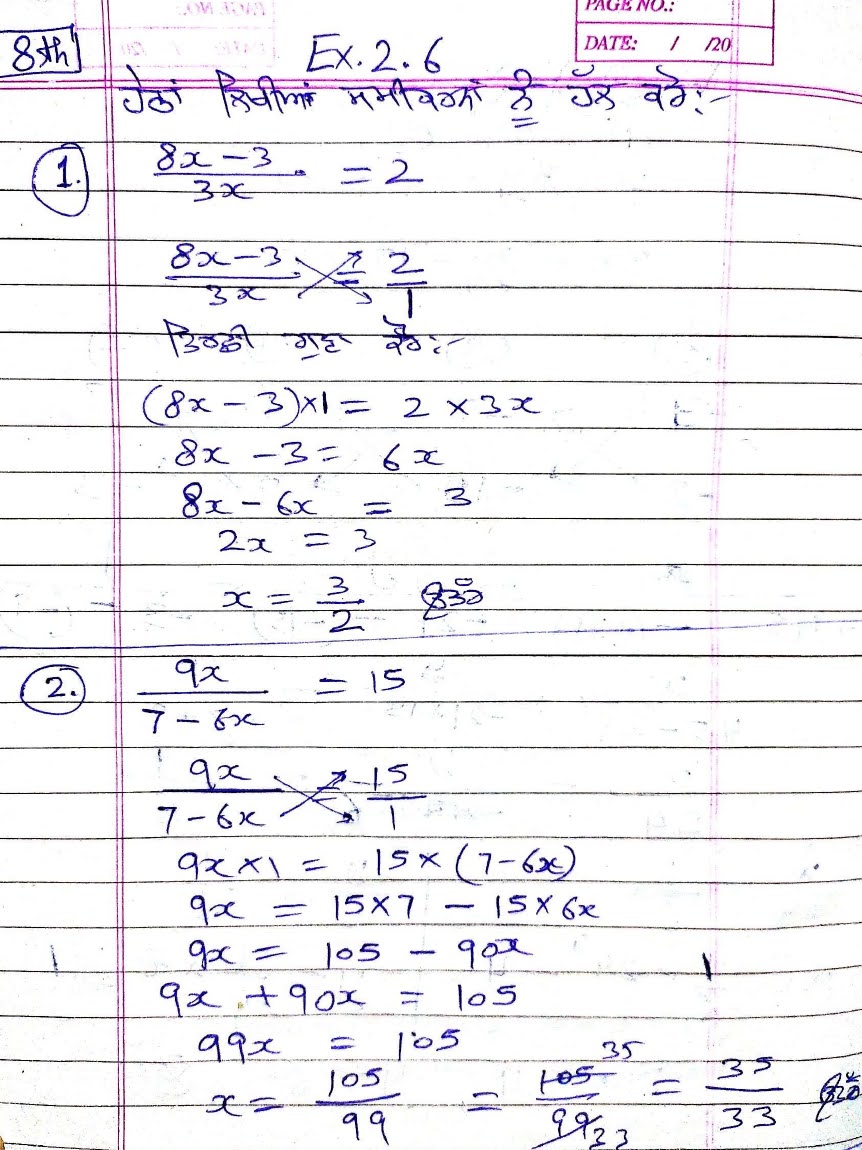 PAGE NO.:
DATE: / /20
8th
Ex. 2.6
ਹੇਠਾਂ ਲਿਖੀਆਂ ਸਮੀਕਰਨਾਂ ਨੂੰ ਹੱਲ ਕਰੋ:-
1. (8x - 3)/(3x) = 2
(8x - 3)/(3x) = 2/1
ਤਿਰਛੀ ਗੁਣਾ ਕਰੋ:-
(8x - 3)×1 = 2 × 3x
8x - 3 = 6x
8x - 6x = 3
2x = 3
x = 3/2 ਉੱਤਰ
2. 9x/(7 - 6x) = 15
9x/(7 - 6x) = 15/1
9x × 1 = 15 × (7 - 6x)
9x = 15 × 7 - 15 × 6x
9x = 105 - 90x
9x + 90x = 105
99x = 105
x = 105/99 = 105/99 35 33 = 35/33 ਉੱਤਰ